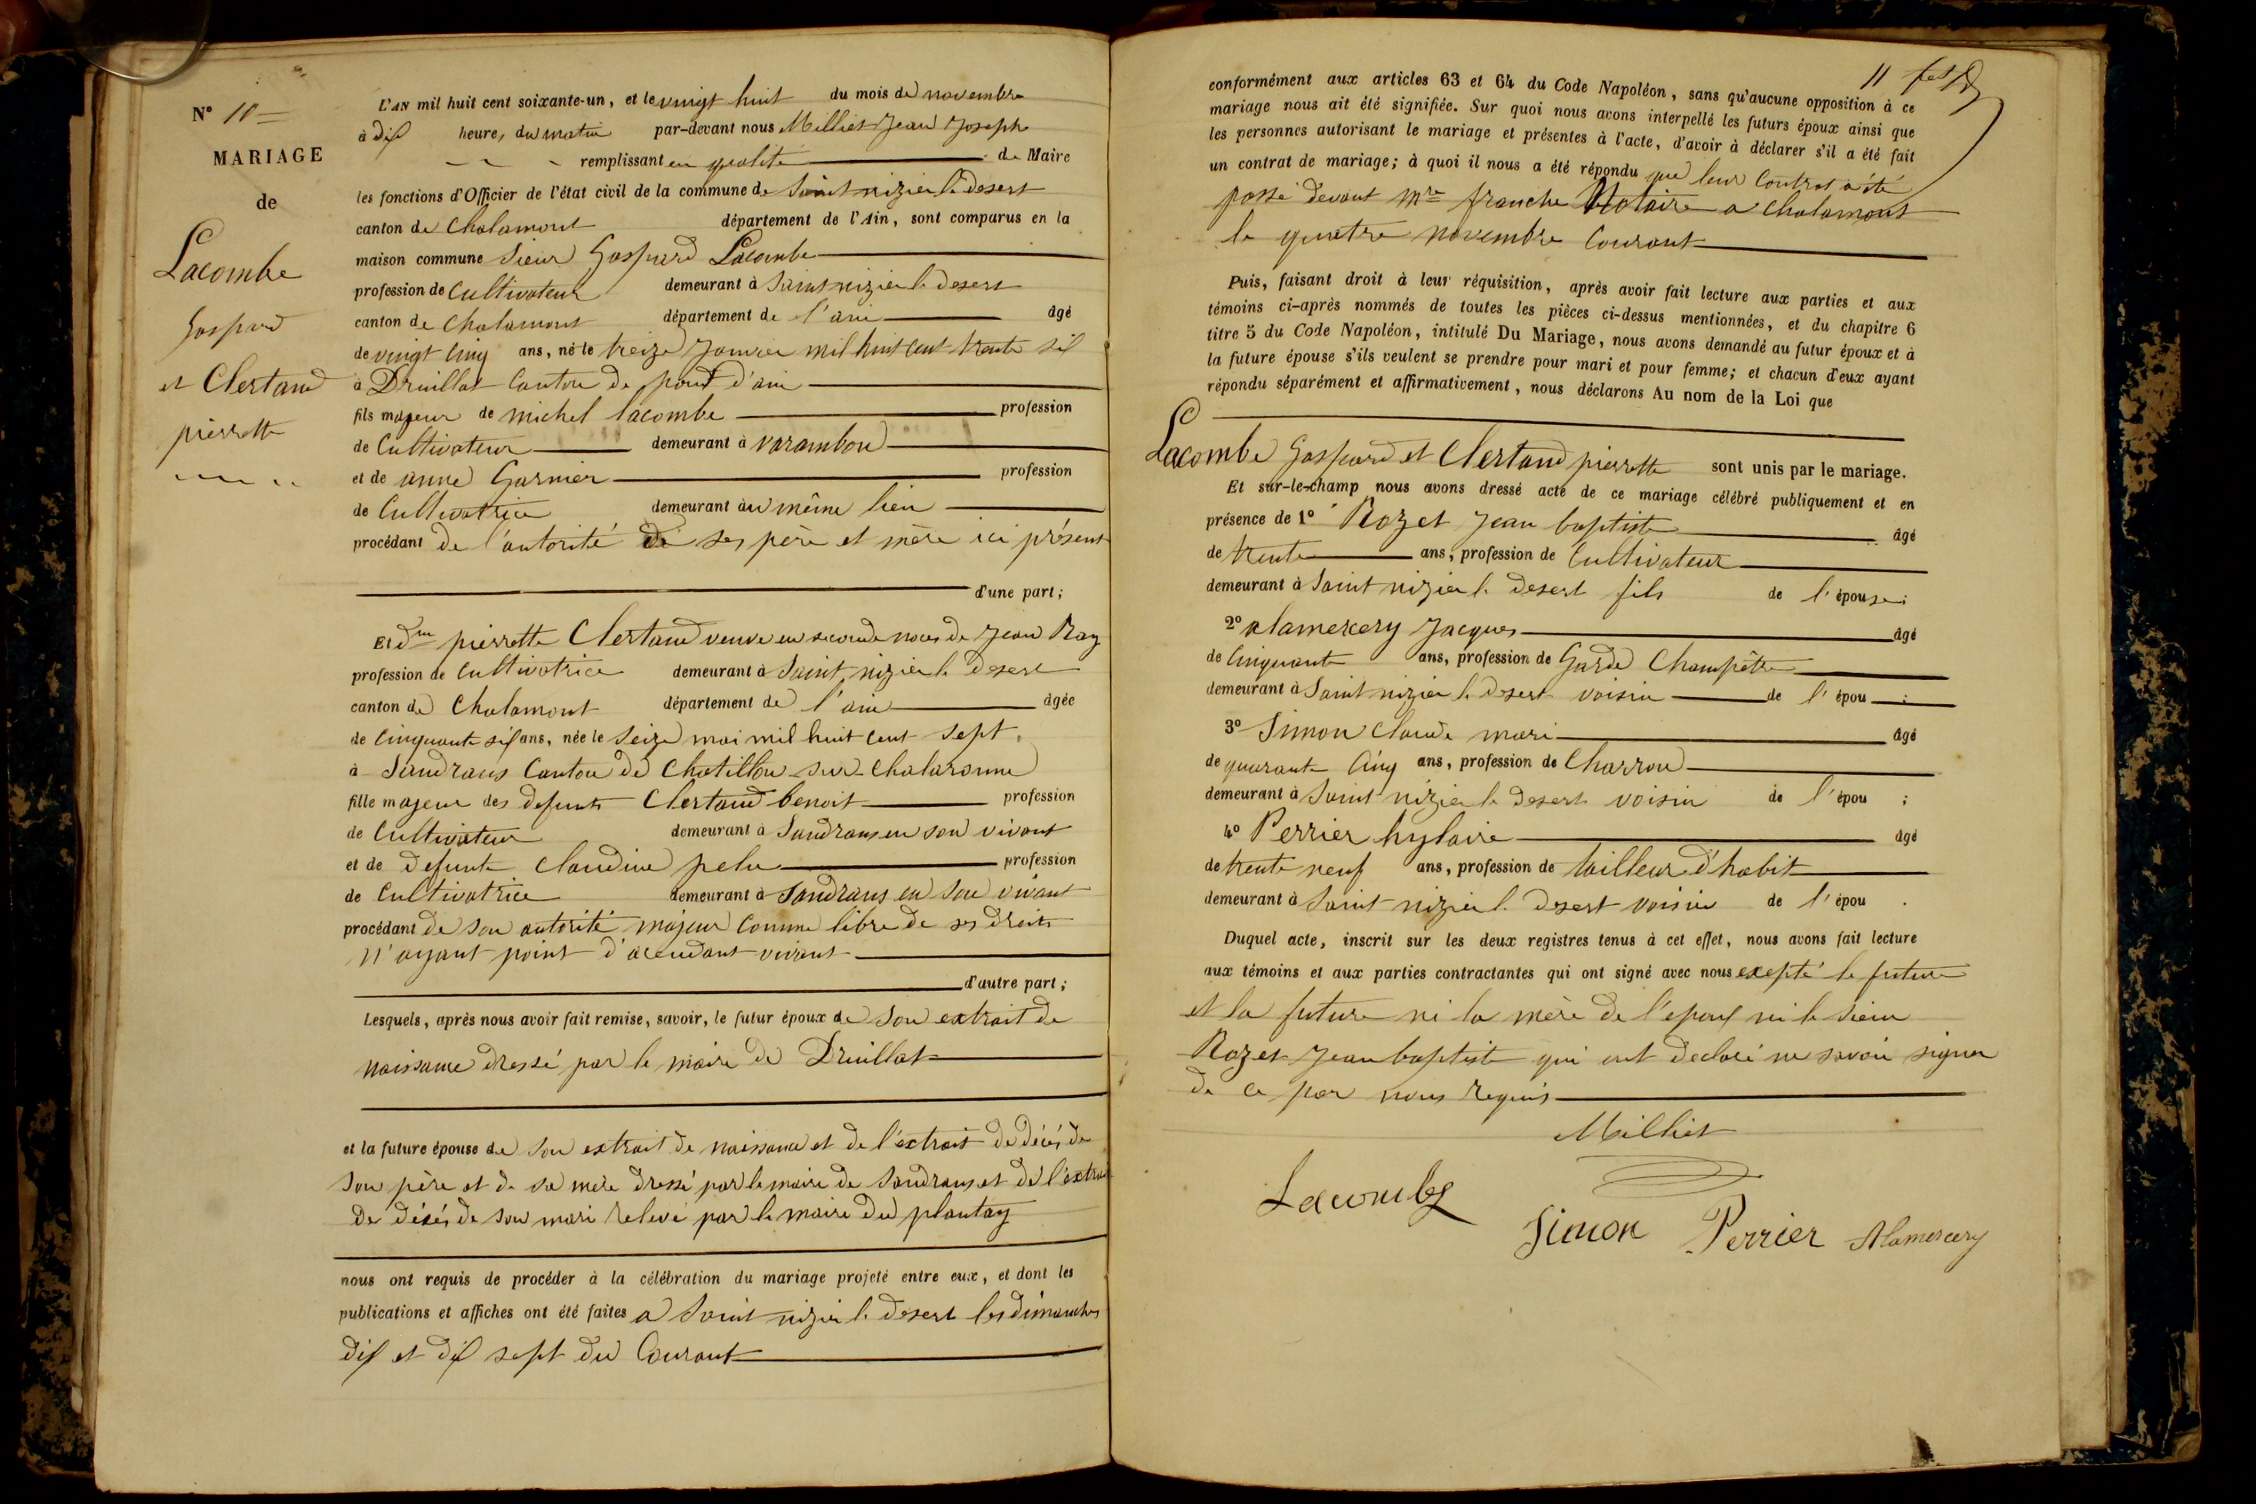 N° 10
MARIAGE
de
Lacombe
Gaspard
et Clertand
pierrette
L'AN mil huit cent soixante-un, et le vingt huit du mois de novembre
à dix heures du matin par-devant nous Milliet Jean Joseph
remplissant en qualité de Maire
les fonctions d'Officier de l'état civil de la commune de Saint nizier le desert
canton de Chalamont département de l'Ain, sont comparus en la
maison commune Sieur Gaspard Lacombe
profession de Cultivateur demeurant à Saint nizier le desert
canton de Chalamont département de l'ain âgé
de vingt cinq ans, né le treize Janvier mil huit cent trente six
à Druillat Canton de pont d'ain
fils majeur de michel lacombe profession
de Cultivateur demeurant à varambon
et de anne Garnier profession
de Cultivatrice demeurant au même lieu
procédant de l'autorité de ses père et mère ici présent
d'une part;
Et dme pierrette Clertand veuve en seconde noces de Jean Ray
profession de Cultivatrice demeurant à Saint nizier le desert
canton de Chalamont département de l'ain âgée
de Cinquante six ans, née le Seize mai mil huit cent sept
à Sandrans Canton de Chatillon sur Chalaronne
fille majeur des defunts Clertand benoit profession
de Cultivateur demeurant à Sandrans en son vivant
et de defunte Claudine pelu profession
de Cultivatrice demeurant à Sandrans en son vivant
procédant de son autorité majeur comme libre de ses droits
n'ayant point d'acendant vivant
d'autre part;
Lesquels, après nous avoir fait remise, savoir, le futur époux de Son extrait de
naissance dressé par le maire de Druillat
et la future épouse de son extrait de naissance et de l'extrait de décés de
son père et de sa mère dressé par le maire de Sandrans et de l'extrait
de décés de son mari relevé par le maire du plantay
nous ont requis de procéder à la célébration du mariage projeté entre eux, et dont les
publications et affiches ont été faites a Saint nizier le desert les dimanches
dix et dix sept du Courant
11
conformément aux articles 63 et 64 du Code Napoléon, sans qu'aucune opposition à ce
mariage nous ait été signifiée. Sur quoi nous avons interpellé les futurs époux ainsi que
les personnes autorisant le mariage et présentes à l'acte, d'avoir à déclarer s'il a été fait
un contrat de mariage; à quoi il nous a été répondu que leur Contrat a été
passé devant Mre franche Notaire a Chalamont
le quatre novembre Courant
Puis, faisant droit à leur réquisition, après avoir fait lecture aux parties et aux
témoins ci-après nommés de toutes les pièces ci-dessus mentionnées, et du chapitre 6
titre 5 du Code Napoléon, intitulé Du Mariage, nous avons demandé au futur époux et à
la future épouse s'ils veulent se prendre pour mari et pour femme; et chacun d'eux ayant
répondu séparément et affirmativement, nous déclarons Au nom de la Loi que
Lacombe Gaspard et Clertand pierrette sont unis par le mariage.
Et sur-le-champ nous avons dressé acte de ce mariage célébré publiquement et en
présence de 1° Rozet Jean baptiste âgé
de trente ans, profession de Cultivateur
demeurant à Saint nizier le desert fils de l'épouse;
2° alamercery Jacques âgé
de Cinquante ans, profession de Garde Champêtre
demeurant à Saint nizier le desert voisin de l'épou ;
3° Simon Claude mari âgé
de quarante Cinq ans, profession de Charron
demeurant à Saint nizier le desert voisin de l'épou ;
4° Perrier hylaire âgé
de trente neuf ans, profession de tailleur d'habit
demeurant à Saint nizier le desert voisin de l'épou .
Duquel acte, inscrit sur les deux registres tenus à cet effet, nous avons fait lecture
aux témoins et aux parties contractantes qui ont signé avec nous exepté le future
et la future ni la mère de l'epoux ni le sieur
Rozet Jean baptiste qui ont declaré ne savoir signer
de ce par nous requis
Milliet
Lacombe
Simon Perrier Alamercery